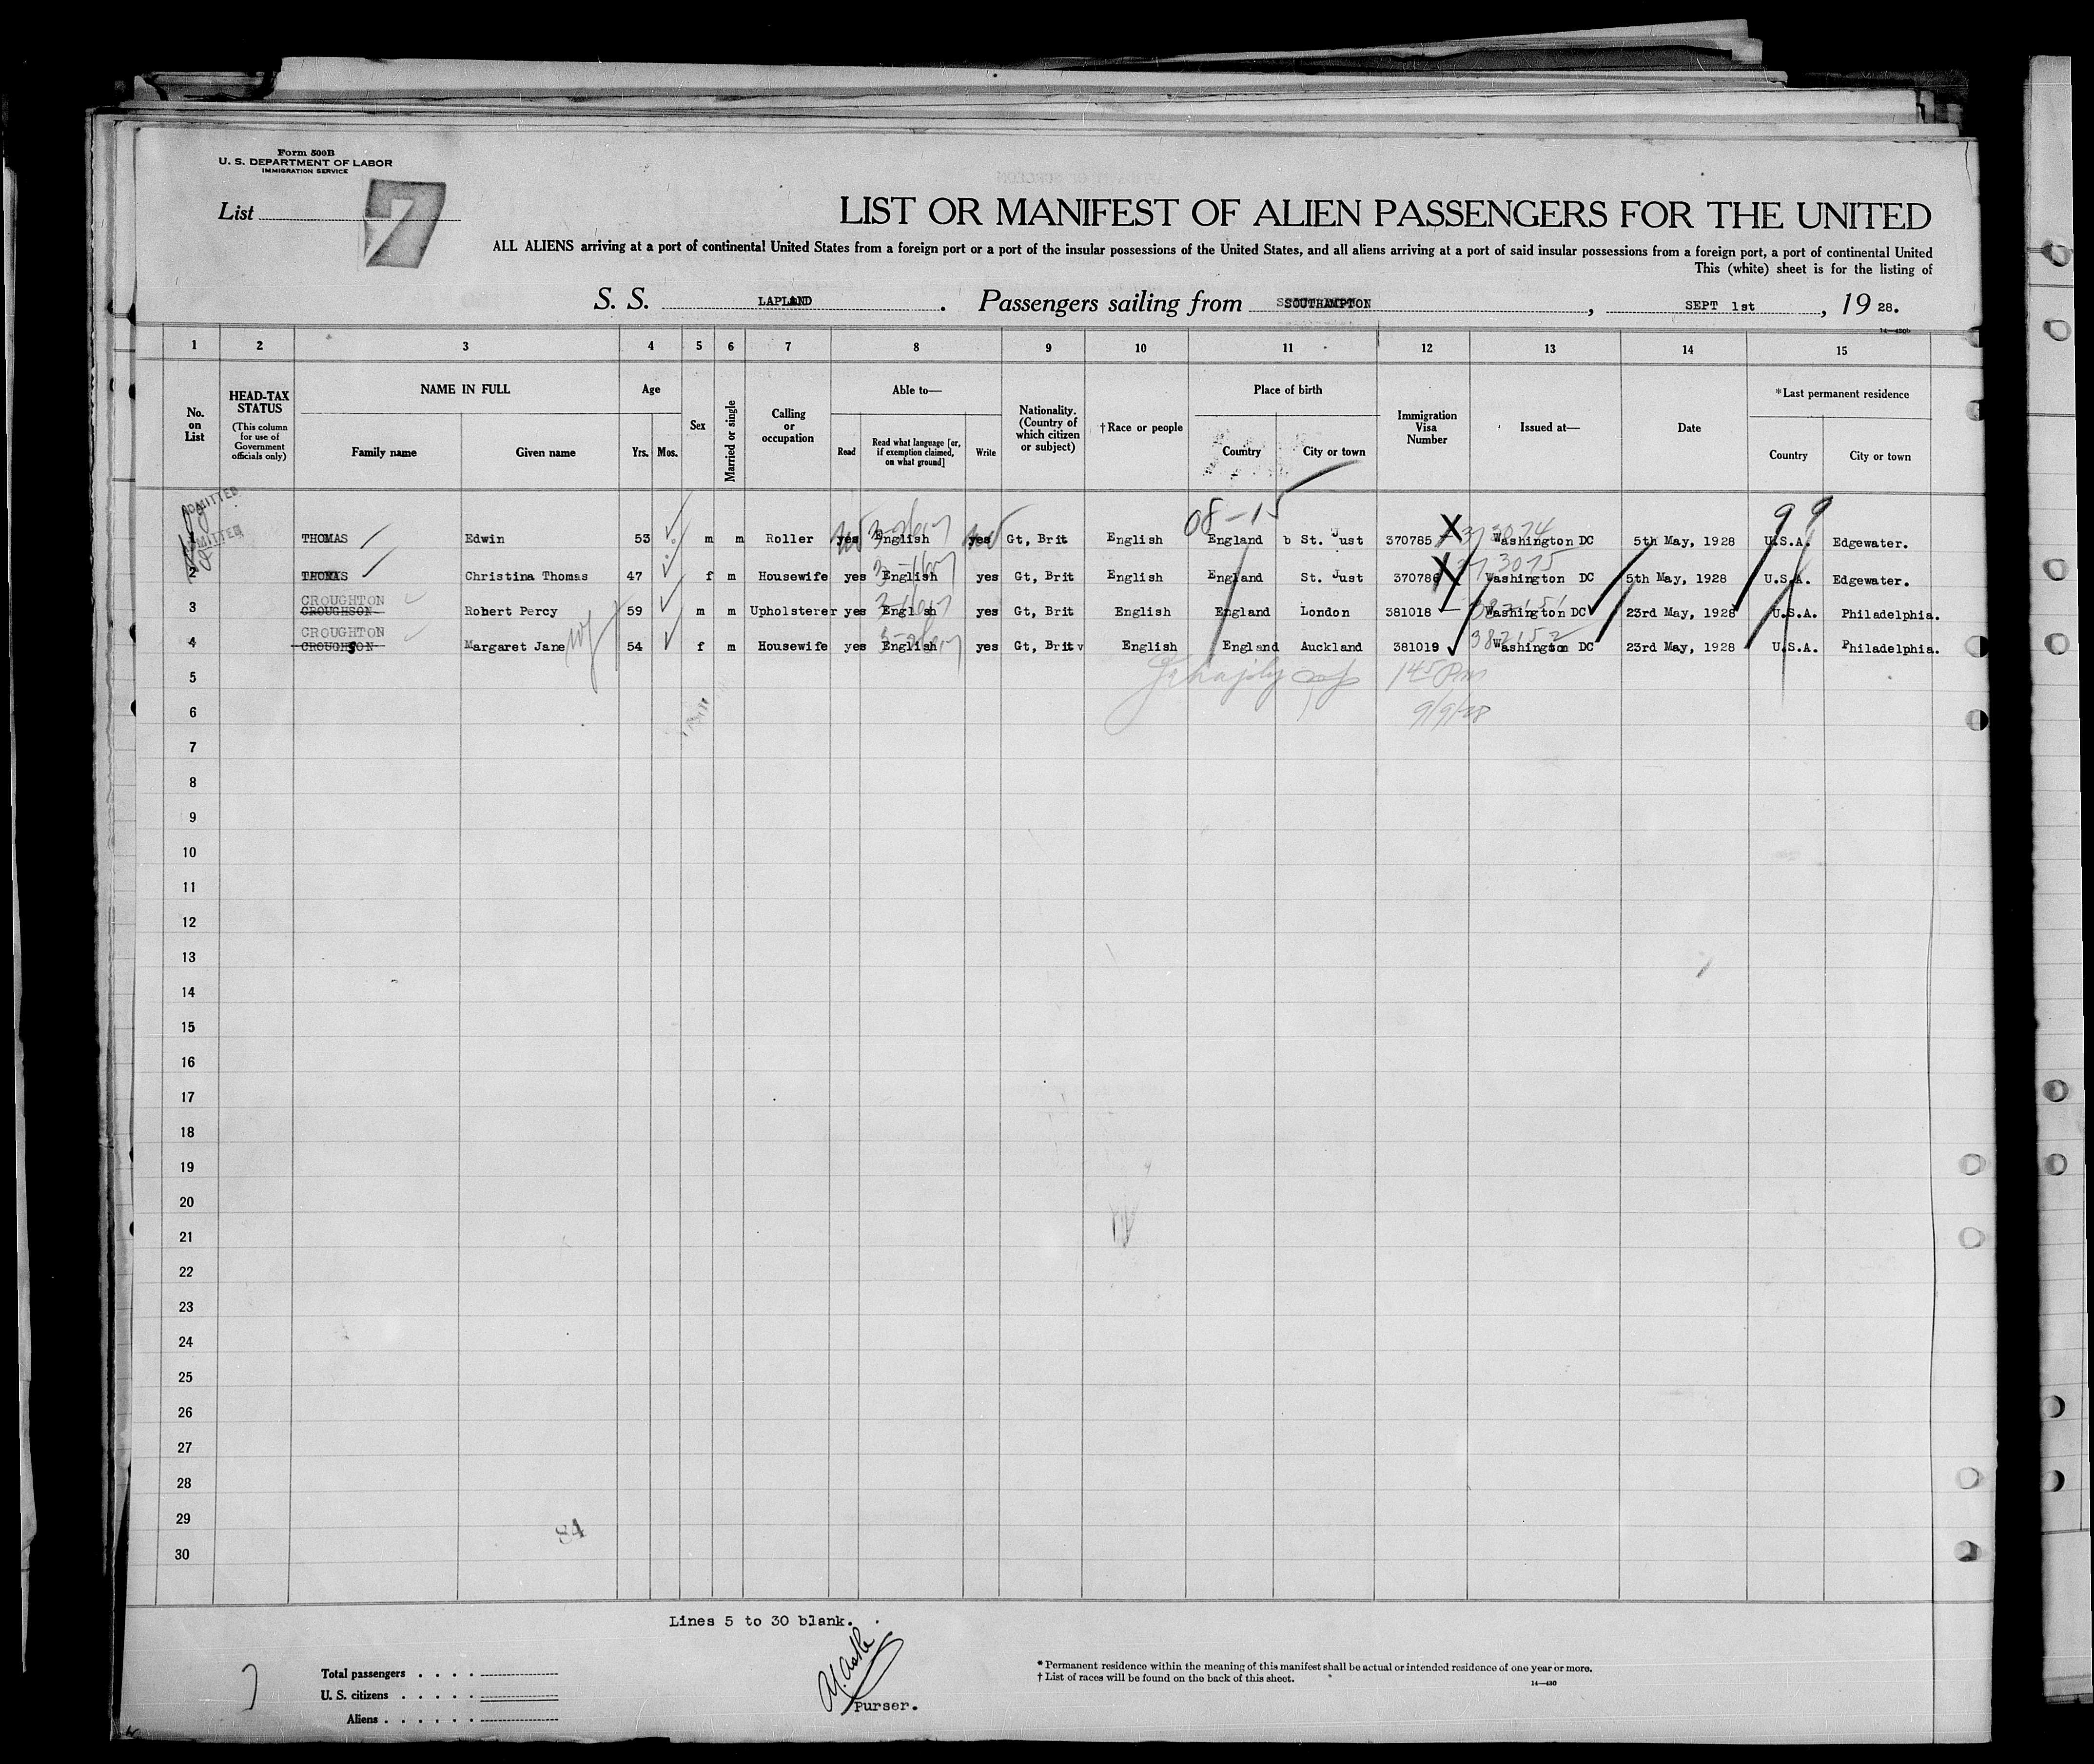 Form 500B
U. S. DEPARTMENT OF LABOR
IMMIGRATION SERVICE
List 7
LIST OR MANIFEST OF ALIEN PASSENGERS FOR THE UNITED
ALL ALIENS arriving at a port of continental United States from a foreign port or a port of the insular possessions of the United States, and all aliens arriving at a port of said insular possessions from a foreign port, a port of continental United
This (white) sheet is for the listing of
S. S. LAPLAND. Passengers sailing from SOUTHAMPTON, SEPT 1st, 19 28.
14—430b
1 2 3 4 5 6 7 8 9 10 11 12 13 14 15
No. on List
HEAD-TAX STATUS
(This column for use of Government officials only)
NAME IN FULL
Family name Given name
Age
Yrs. Mos.
Sex
Married or single
Calling or occupation
Able to—
Read Read what language [or, if exemption claimed, on what ground] Write
Nationality. (Country of which citizen or subject)
†Race or people
Place of birth
Country City or town
Immigration Visa Number
Issued at—
Date
*Last permanent residence
Country City or town
ADMITTED
ADMITTED
08-15
99
1 THOMAS Edwin 53 m m Roller yes English yes Gt, Brit English England b St. Just 370785 373074 Washington DC 5th May, 1928 U.S.A. Edgewater.
2 THOMAS Christina Thomas 47 f m Housewife yes English yes Gt, Brit English England St. Just 370786 373075 Washington DC 5th May, 1928 U.S.A. Edgewater.
CROUGHTON
3 CROUGHSON Robert Percy 59 m m Upholsterer yes English yes Gt, Brit English England London 381018 382151 Washington DC 23rd May, 1928 U.S.A. Philadelphia.
CROUGHTON
4 CROUGHSON Margaret Jane wf 54 f m Housewife yes English yes Gt, Brit v English England Auckland 381019 382152 Washington DC 23rd May, 1928 U.S.A. Philadelphia.
5 145 Pm
6 9/9/28
7
8
9
10
11
12
13
14
15
16
17
18
19
20
21
22
23
24
25
26
27
28
29
84
30
Lines 5 to 30 blank.
Total passengers . . . .
U. S. citizens . . . . .
Aliens . . . . . .
Purser.
* Permanent residence within the meaning of this manifest shall be actual or intended residence of one year or more.
† List of races will be found on the back of this sheet.
14—430